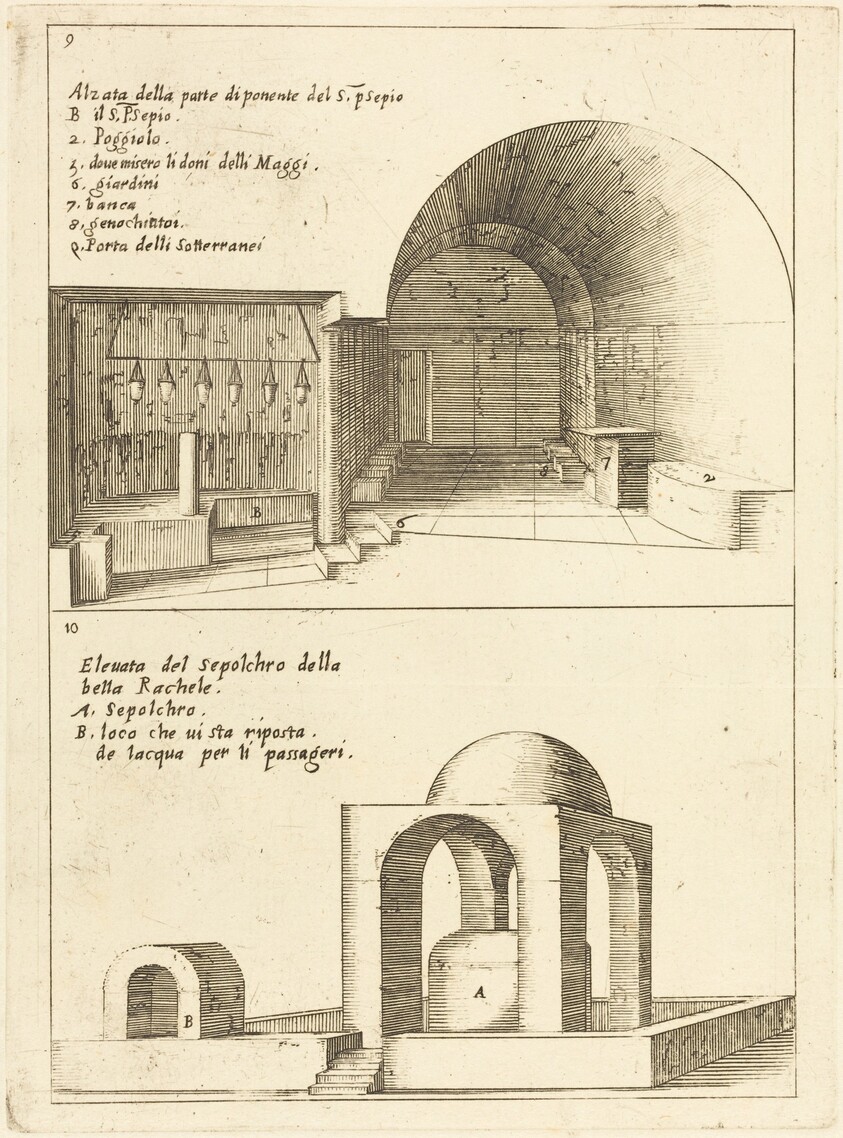 9
Alzata della parte di ponente del S. pSepio
B il S. PSepio.
2. Poggiolo.
3. doue misero li doni delli Maggi.
6. giardini
7. banca
8. genochiatoi.
9. Porta delli Sotterranei
B
6
8
7
2
10
Eleuata del Sepolchro della
bella Rachele.
A. Sepolchro.
B. loco che ui sta riposta.
de lacqua per li passageri.
A
B